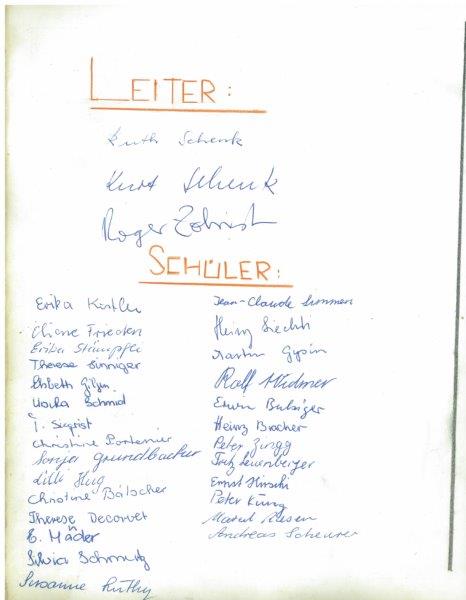 LEITER:
Ruth Schenk
Kurt Schenk
Roger Zobrist
SCHÜLER:
Erika
Eliane Frieden
Erika Stämpfli
Therese Binniger
Elsbeth
Schmid
Sigrist
Christine Portenier
Sonja Grundbacher
Lilli Hug
Christine Bätscher
Therese Decorvet
B. Mäder
Silvia Schmutz
Susanne
Jean-Claude Summen
Heinz Liechti
Martin Gysin
Rolf Widmer
Erwin Balsiger
Heinz Bracher
Peter Zingg
Fritz Leuenberger
Ernst Hirschi
Peter Küng
Marcel Riesen
Andreas Scheurer